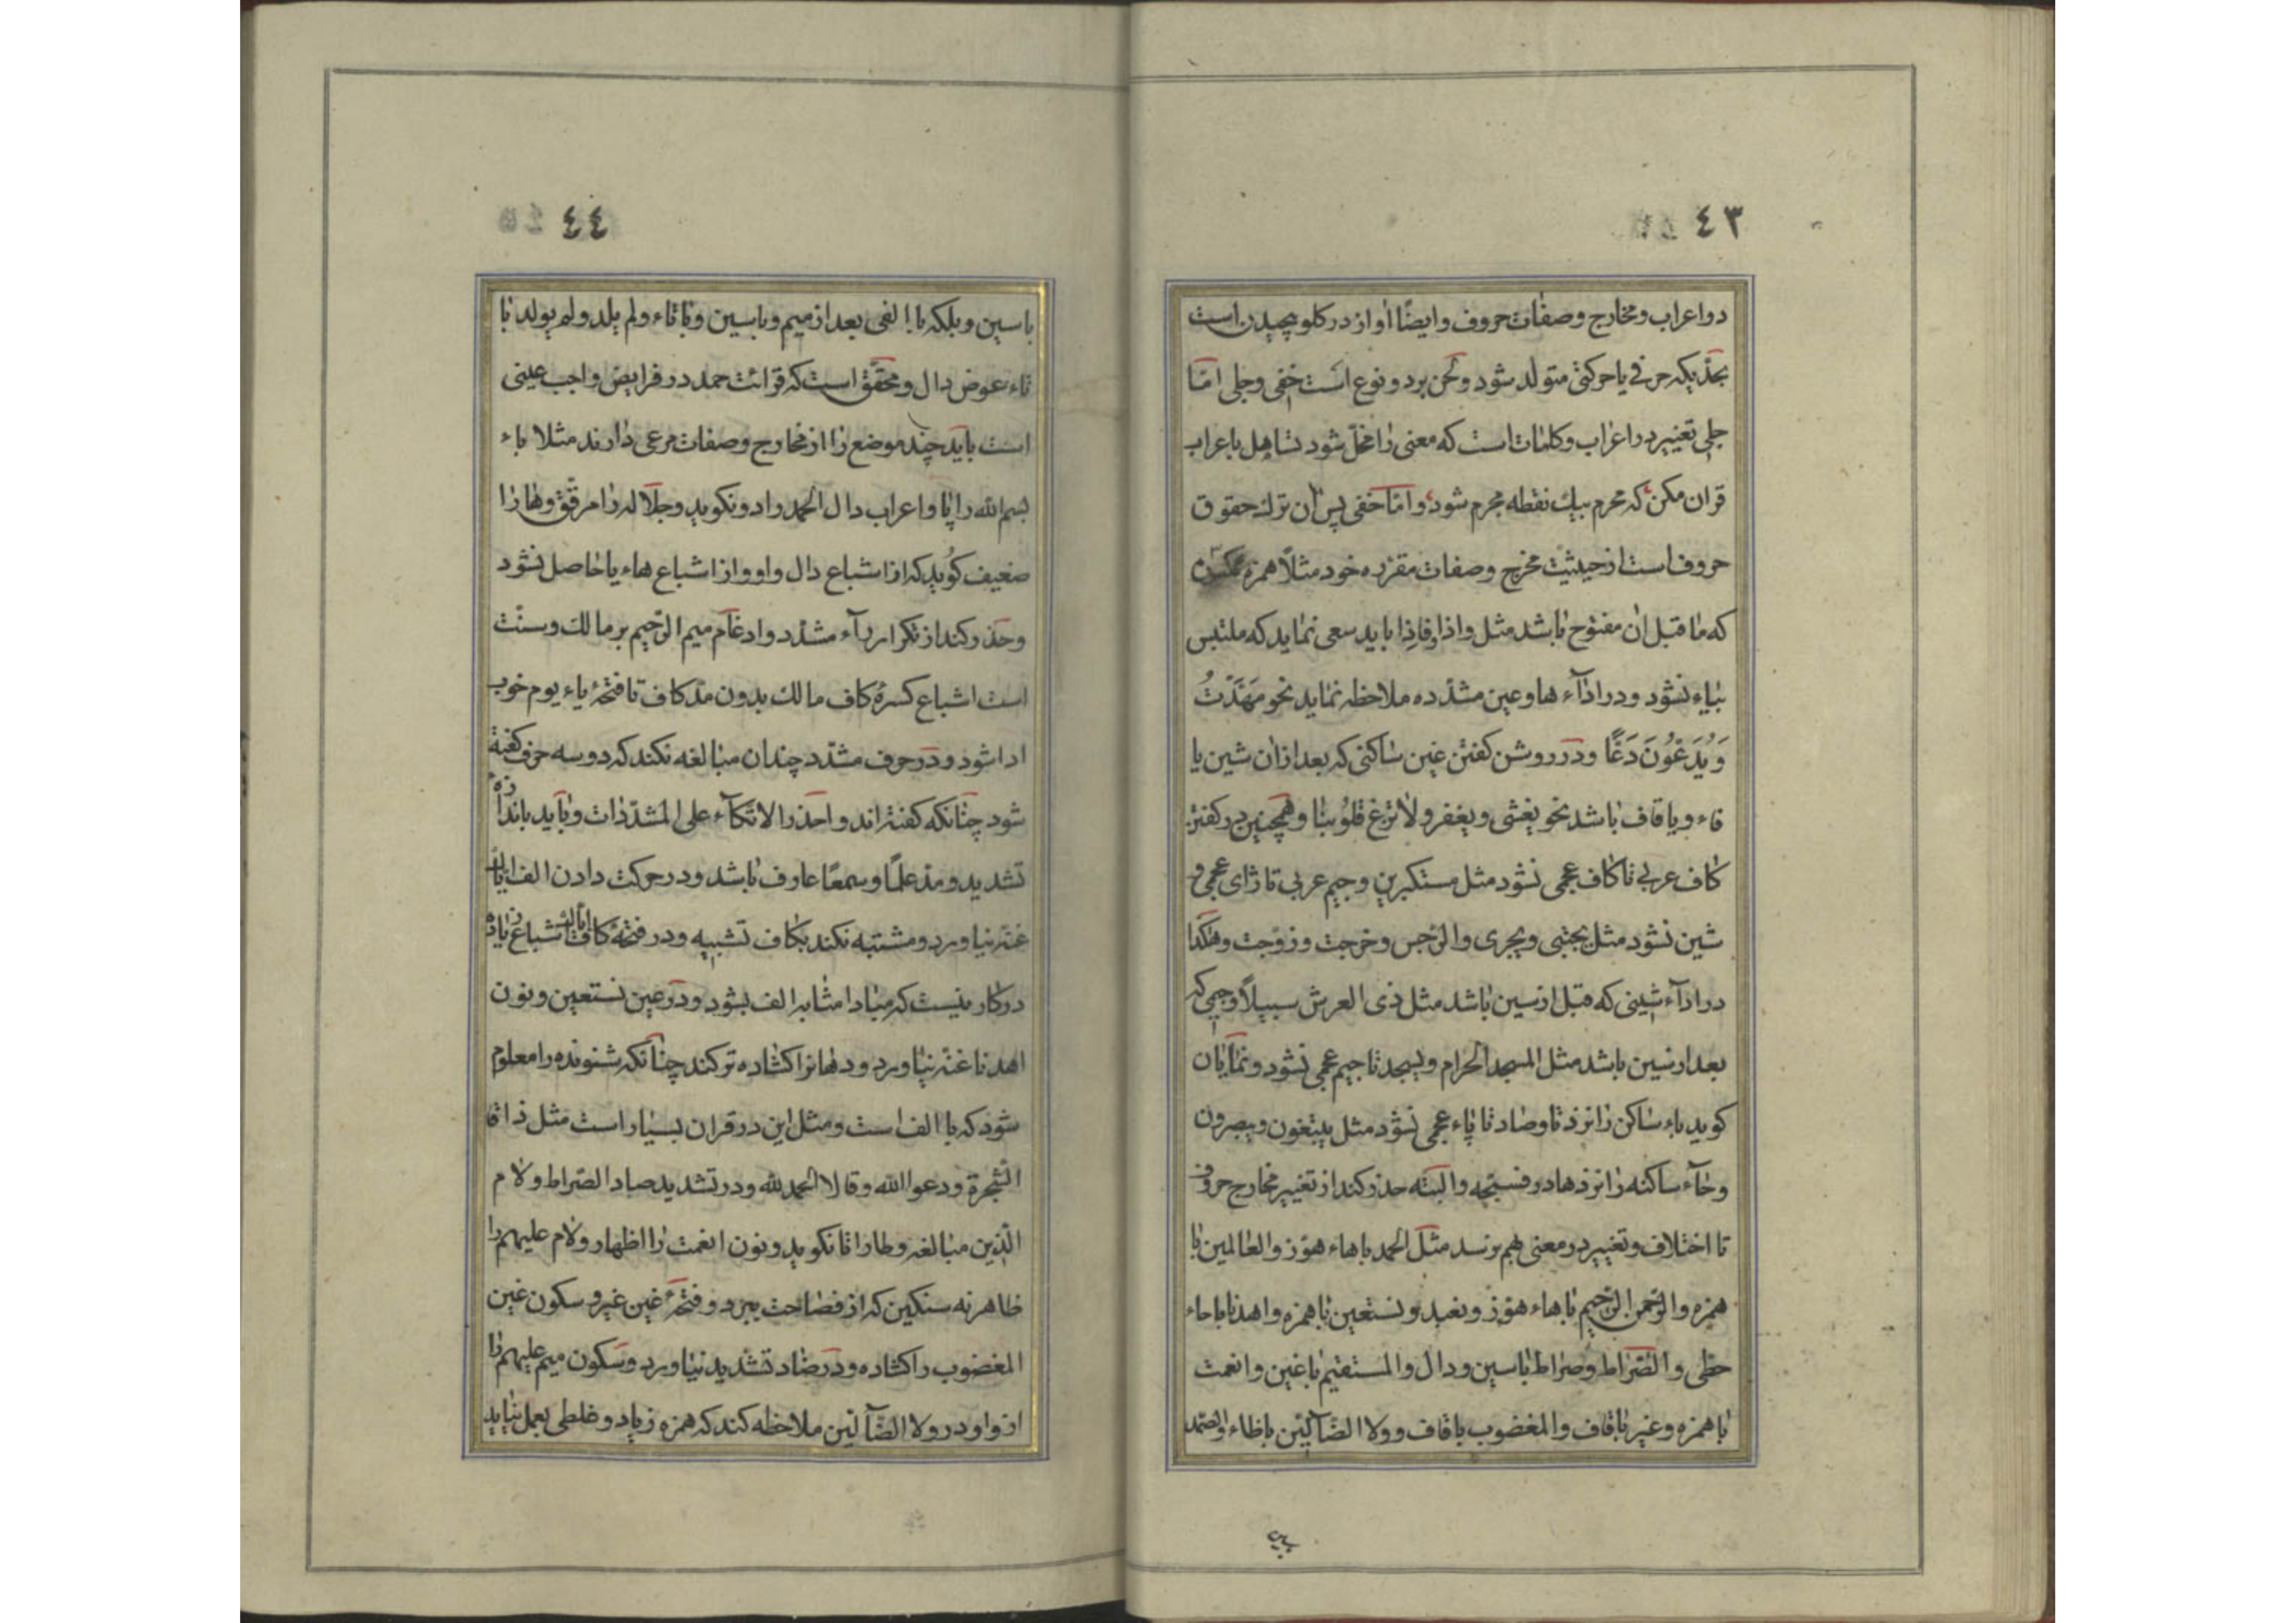 ٤٣
دو اعراب و مخارج و صفات حروف و ایضًا اواز در کلو پیچیدن است
بحدّیکه حرفی یا حرکتی متولد شود و لحن بر دو نوع است خفی و جلی امّا
جلی تغییر در اعراب و کلمات است که معنی را مخلّ شود تساهل باعراب
قران مکن که محرم بیك نقطه مجرم شود و امّا خفی پس آن ترك حقوق
حروف است از حیثیت مخرج و صفات مقرره خود مثلاً همزه مکسوره
که ما قبل ان مفتوح باشد مثل واذا و فاذا باید سعی نماید که ملتبس
بیاء نشود و در ادآء ها و عین مشدّده ملاحظه نماید نحو مَهَّدْتُ
وَ یُدَعُّونَ دَعًّا و در روشن کفتن غین ساکنی که بعد از ان شین یا
فاء و یا قاف باشد نحو یغشی و یغفر و لا تزغ قلوبنا و همچنین در کفتن
کاف عربی تا کاف عجمی نشود مثل مستکبرین و جیم عربی تا زای عجمی و
شین نشود مثل یجتبی و یجری و الرّجس و خرجت و زوّجت و هکذا
در ادآء شینی که قبل از سین باشد مثل ذی العرش سبیلاً و جیمی که
بعد از سین باشد مثل المسجد الحرام و یسجد تا جیم عجمی نشود و نمایان
کوید باء ساکن را نزد تا و صاد تا پاء عجمی نشود مثل یبتغون و یبصرون
و حآء ساکنه را نزد ها در فسبّحه و البته حذر کند از تغییر مخارج حروف
تا اختلاف و تغییر در معنی بهم نرسد مثل الحمد باهاء هوّز و العالمین با
همزه و الرّحمن الرّحیم باهاء هوّز و نعبد و نستعین با همزه و اهدنا باحاء
حطی و الصّراط و صراط باسین و دال و المستقیم با غین و انعمت
با همزه و غیر با قاف و المغضوب با قاف و ولا الضّآلّین با ظاء و الصّمد
٤٤
باسین و بلکه با الفی بعد از میم و باسین و با تاء و لم یلد و لم یولد با
تاء عوض دال و محقّق است که قرائت حمد در فرایض واجب عینی
است باید چند موضع را از مخارج و صفات مرعی دارند مثلا باء
بسم الله را پا و اعراب دال الحمد را دو نکوید و جلاله را مرقّق و ها را
ضعیف کوید که از اشباع دال واو و از اشباع هاء یا حاصل نشود
و حذر کند از تکرار رآء مشدّد و ادغام میم الرّحیم بر مالك و سنّت
است اشباع کسرهٔ کاف مالك بدون مدّ کاف تا فتحهٔ یاء یوم خوب
ادا شود و در حرف مشدّد چندان مبالغه نکند که دو سه حرف کفته
شود چنانکه کفته اند و احذر الاتکآء علی المشدّدات و باید باندازه
تشدید و مد علمًا و سمعًا عارف باشد و در حرکت دادن الف ایاك
غنّه نیاورد و مشتبه نکند بکاف تشبیه و در فتحهٔ کاف ایاك اشباع زیاده
در کار نیست که مبادا مثابه الف بشود و در عین نستعین و نون
اهدنا غنّه نیاورد و دهانرا کشاده تر کند چنانکه شنونده را معلوم
شود که با الف است و مثل این در قران بسیار است مثل ذاقا
الشّجرة و دعوا الله و قالا الحمد لله و در تشدید صاد الصّراط و لام
الّذین مبالغه و طا را تا نکوید و نون انعمت را اظهار و لام علیهم را
ظاهر نه سنکین که از فصاحت ببرد و فتحهٔ غین غیر و سکون غین
المغضوب را کشاده و در ضاد تشدید نیاورد و سکون میم علیهم را
از واو و در ولا الضّآلّین ملاحظه کند که همزه زیاد و غلطی بعمل نیاید